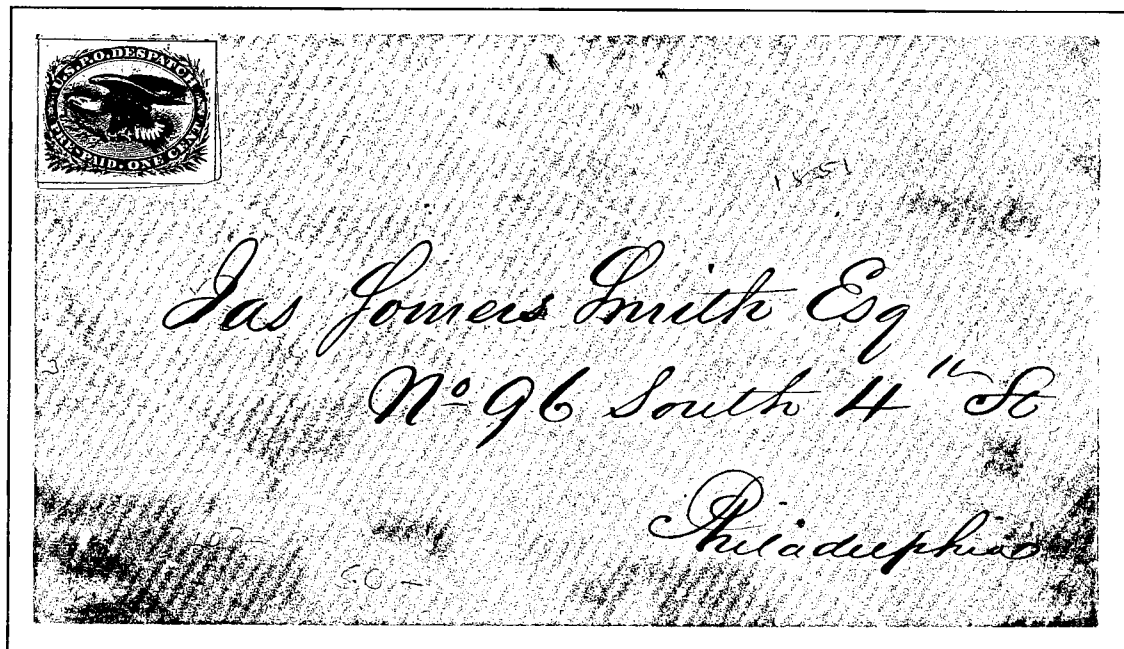 U.S.P.O. DESPATCH
PRE-PAID. ONE CENT
1851
Jas Somers Smith Esq
No 96 South 4th St
Philadelphia
50 -